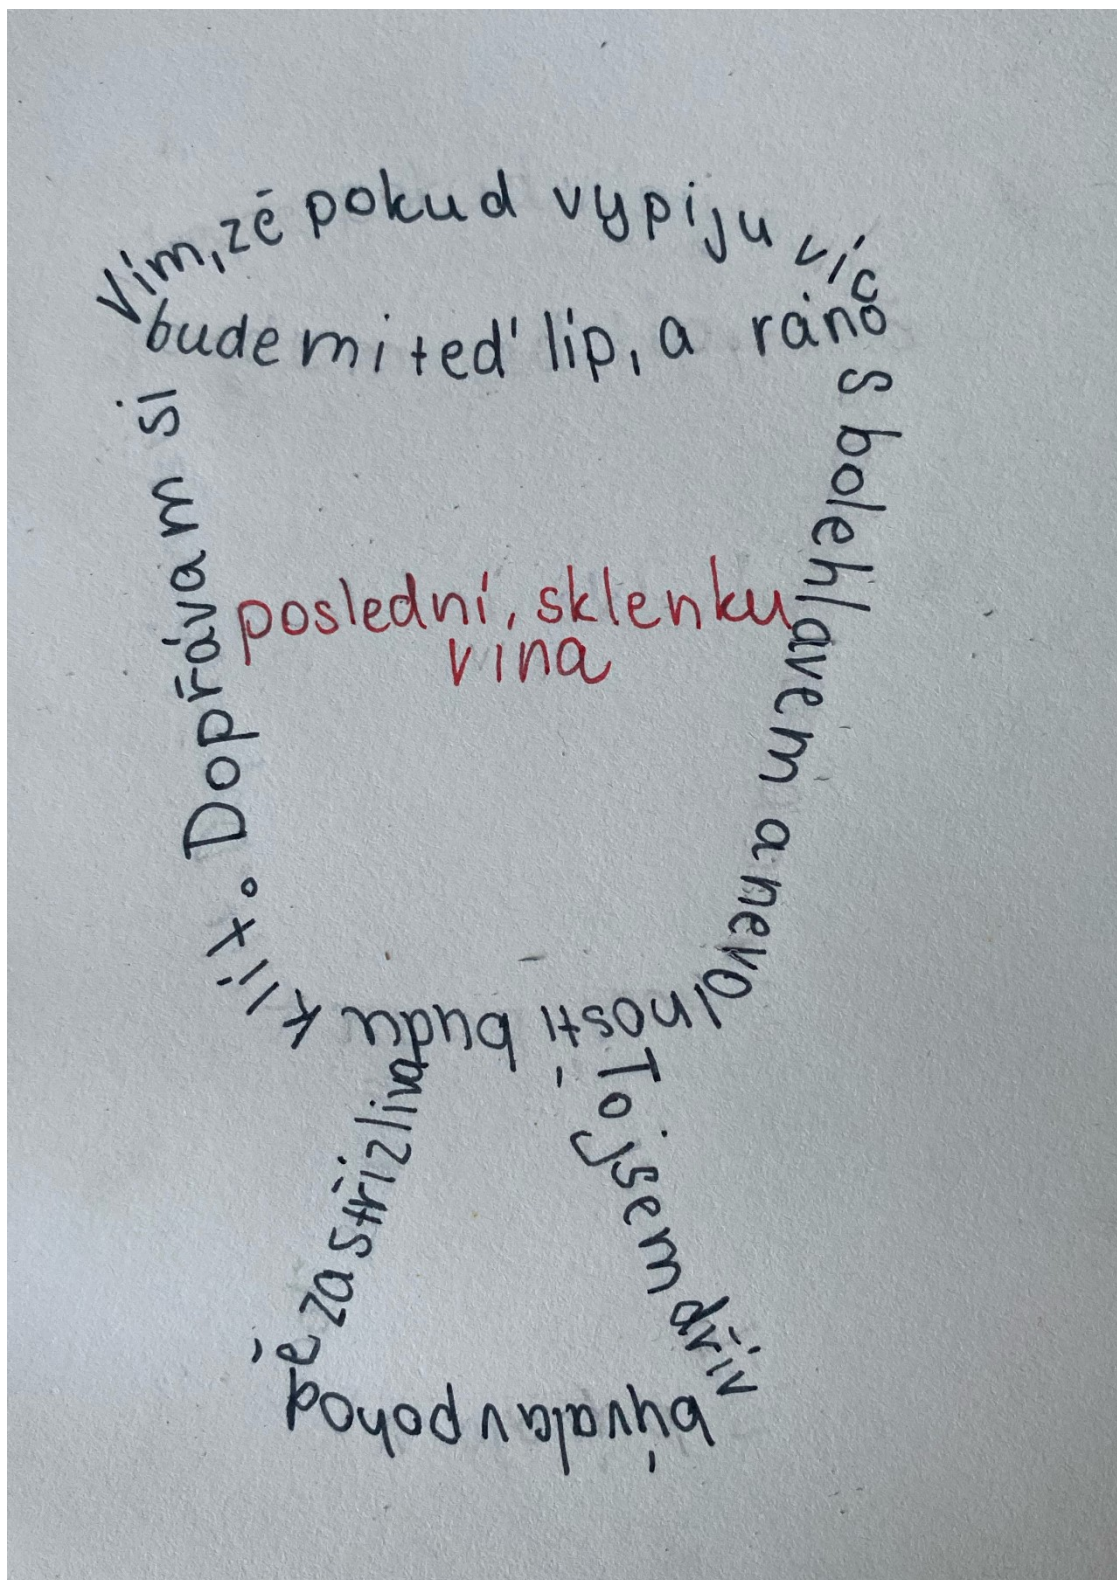 Vím, zē pokud vypiju víc
budemi teď líp, a ráno
s bolehlavem a nevolnosti budu
klít. Dopřávam si
poslední, sklenku
vína
To jsem dřív
bývala v pohod
ě za střízliva